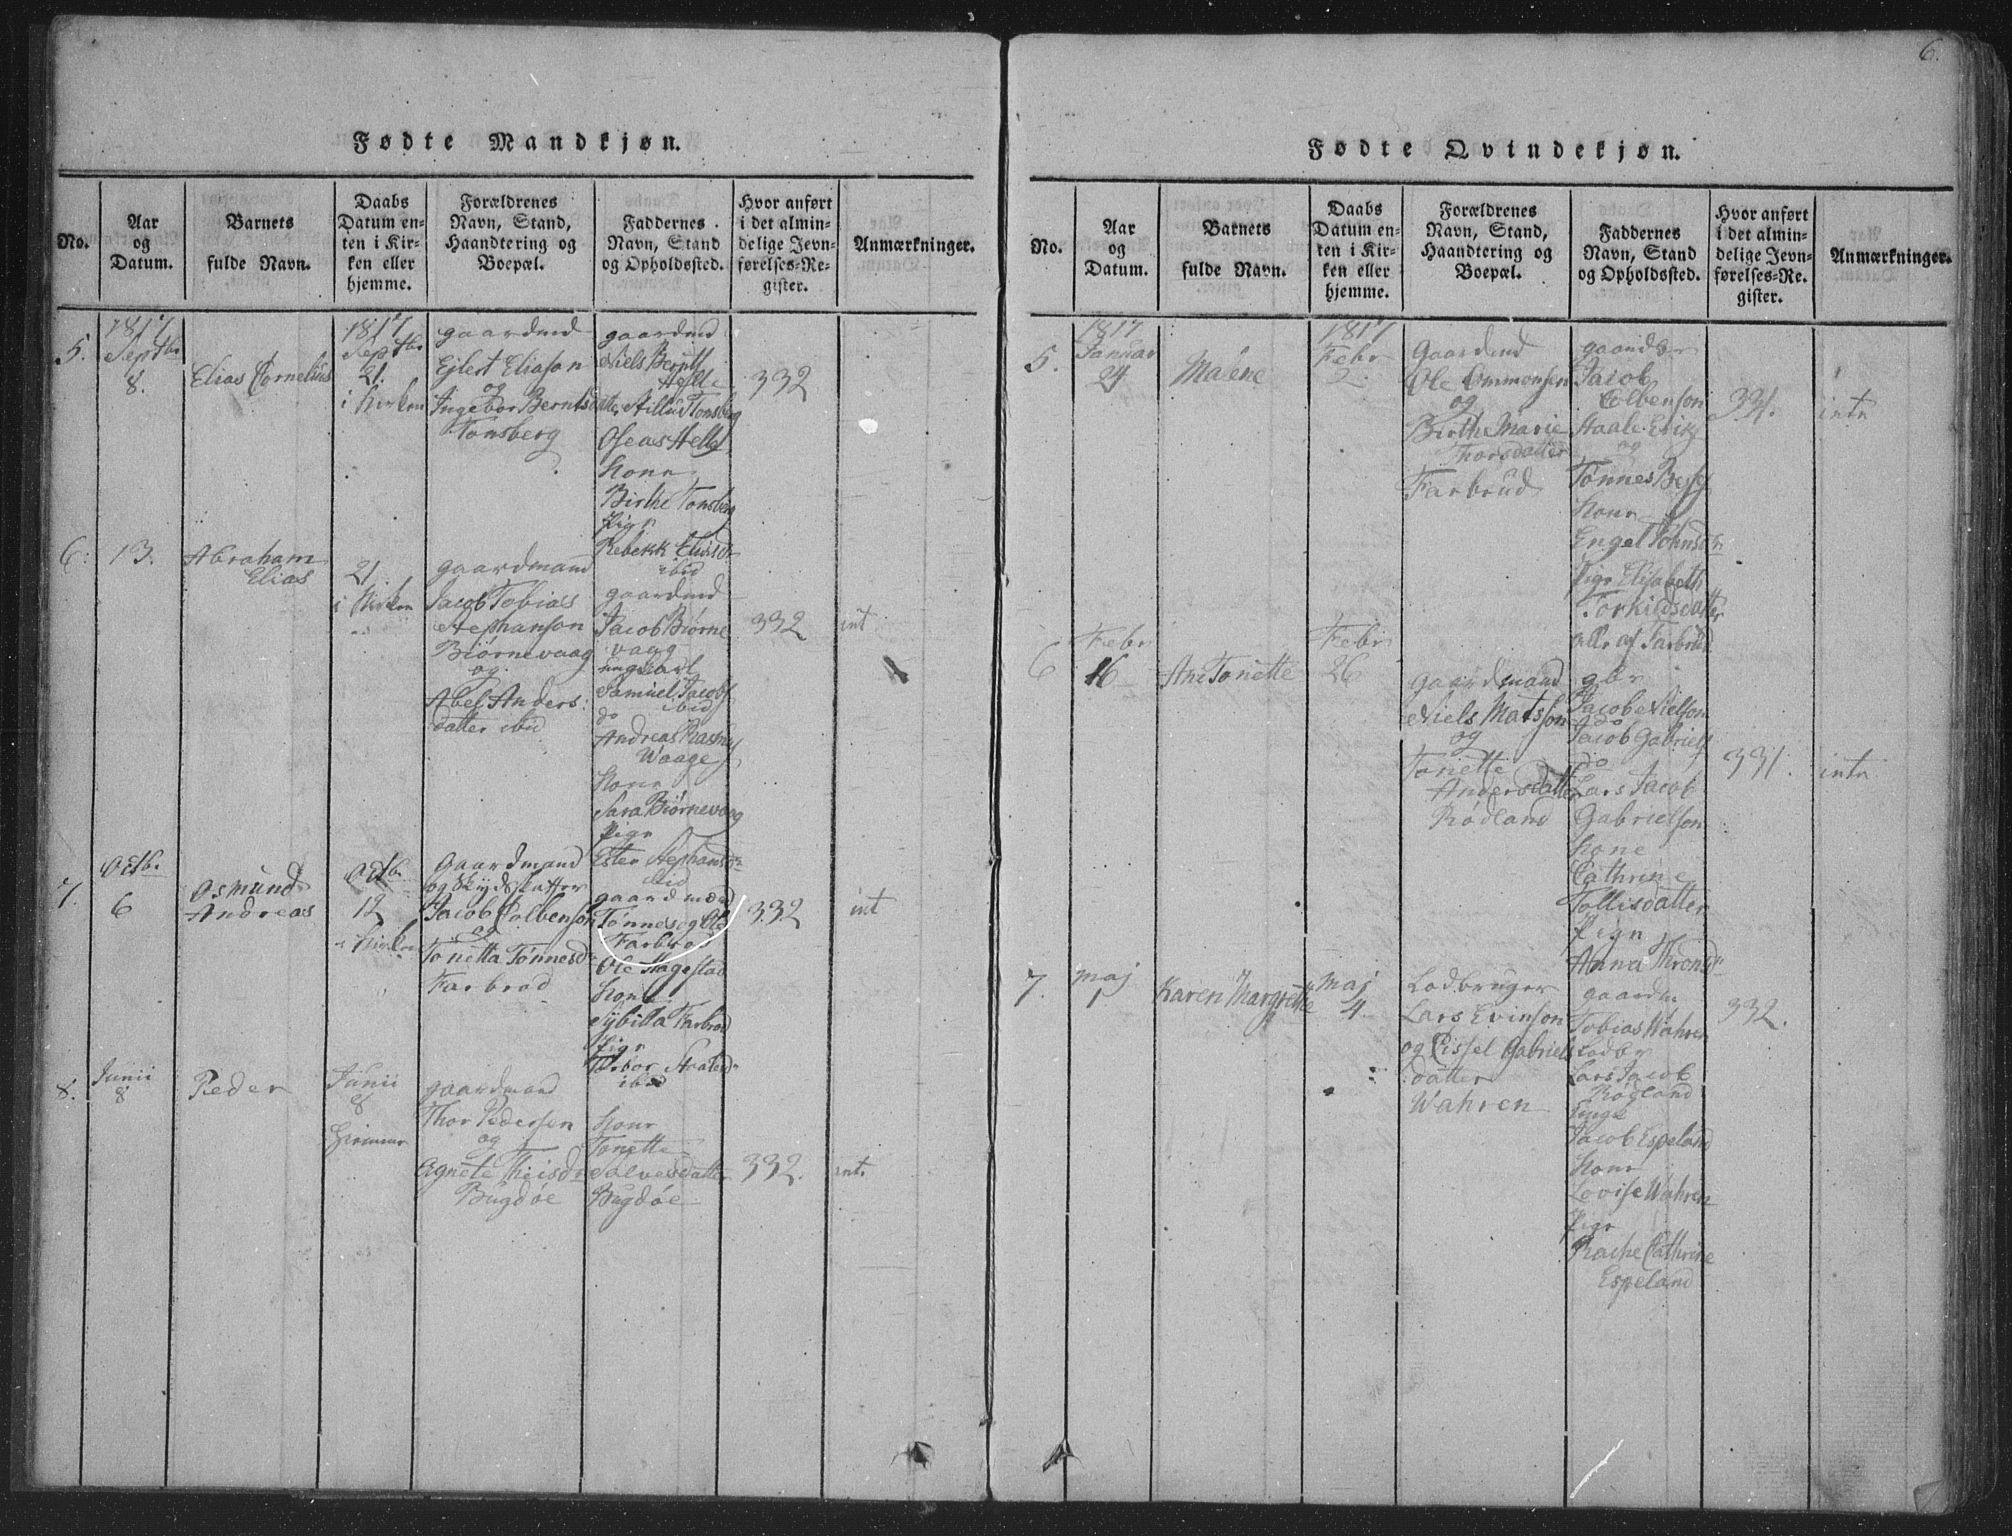 6.
Fødte Mandkjøn.
No.
Aar
og
Datum.
Barnets
fulde Navn.
Daabs
Datum en-
ten i Kir-
ken eller
hjemme.
Forældrenes
Navn, Stand,
Haandtering og
Boepæl.
Faddernes
Navn, Stand
og Opholdssted.
Hvor anført
i det almin-
delige Jevn-
førelses-Re-
gister.
Anmærkninger.
5.
1817
Septbr
8.
Elias Cornelius
1817
Septbr
21.
i Kirken
gaardmd
Ejlert Eliason
og
Ingebor Berntsdatter
Tonsberg
gaardmd
Niels Berntf
Helle
Tonsberg
Oseas Helle
Kone
Birthe Tonsberg
Pige
Rebekk
ibid
332
6.
13.
Abraham
Elias
21
i Kirken
gaardmand
Jacob Tobias
Stephanson
Biørnevaag
og
Abel Anders
datter ibid
gaardmd
Jacob Biørne
vaag
ungkarl
Samuel Jacobs
ibid
do
Andreas Rasmus
Waage
Kone
Sara Biørnevaag
Pige
Ester Stephansdr
ibid
332
int
7.
Octbr
6
Osmund
Andreas
Octbr
12
i Kirken
Gaardmand
og Skydskaffer
Jacob Colbenson
og
Tonetta Tønnesdr
Farbrod
gaardmænd
Tønnes og Ole
Farbro
Ole Hagestad
Kone
Sybilla Farbrod
Pige
Torbor Staalesdr
ibid
332
int
8.
Junii
8
Peder
Junii
8
hiemme
gaardmand
Thor Pedersen
og
Agnete Theisdr
Bugdøe
Kone
Tonette
Salvesdatter
Bugdøe
332.
int.
Fødte Qvindekjøn.
No.
Aar
og
Datum.
Barnets
fulde Navn.
Daabs
Datum en-
ten i Kir-
ken eller
hjemme.
Forældrenes
Navn, Stand,
Haandtering og
Boepæl.
Faddernes
Navn, Stand
og Opholdssted.
Hvor anført
i det almin-
delige Jevn-
førelses-Re-
gister.
Anmærkninger.
5.
1817
Januar
24
Malene
1817
Febr
2.
Gaardmd
Ole Ommonsen
og
Birthe Marie
Thorsdatter
Farbrud
Jacob
Colbenson
Staale Erikf
og
Tønnes Bessf
Kone
Engel Johnsdr
Pige Elisabeth
Torkildsdatter
alle af Farbrud
331.
intr
6
Febr
16
Ane Tonette
Febr
26
gaardmand
Niels Matsson
og
Tonette
Andersdatter
Rødland
gbr
Jacob Nielson
do
Jacob Gabrielf
do
Lars Jacob
Gabrielson
Kone
Cathrine
Tollisdatter
Pigen
Anna Thronsdr
331.
intr
7.
Maj
1
Karen Margrethe
Maj
4.
Lodbruger
Lars Evinson
og Cissel Gabriels
datter
Wahren
gaardm
Tobias Wahren
Lodbr
Lars Jacob
Røgland
Jacob Espeland
Kone
Lovise Wahren
Pige
Cathrine
Espeland
332.